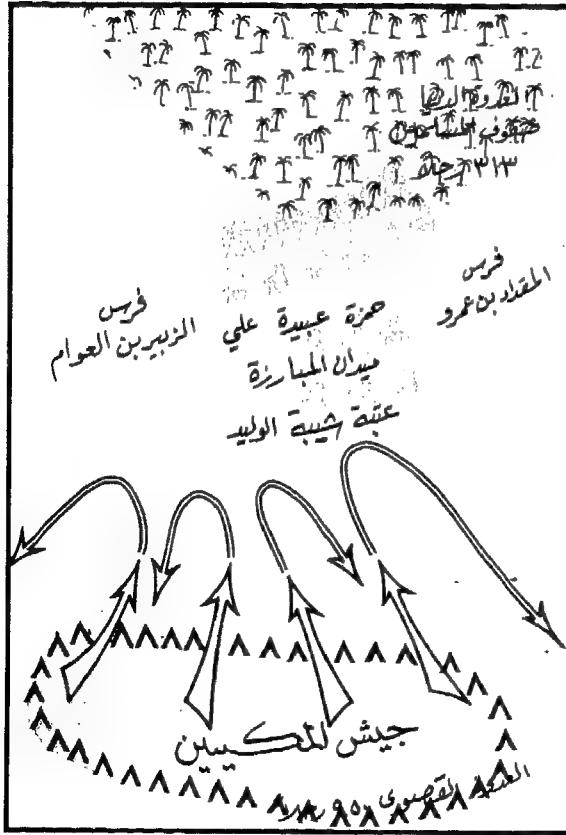 العدوة الدنيا
صفوف المسلمين
٣١٣ رجلا
فرس
المقداد بن عمرو
فرس
الزبير بن العوام
حمزة عبيدة علي
ميدان المبارزة
عتبة شيبة الوليد
جيش المكيين
العدوة القصوى ٩٥٠ رجلا